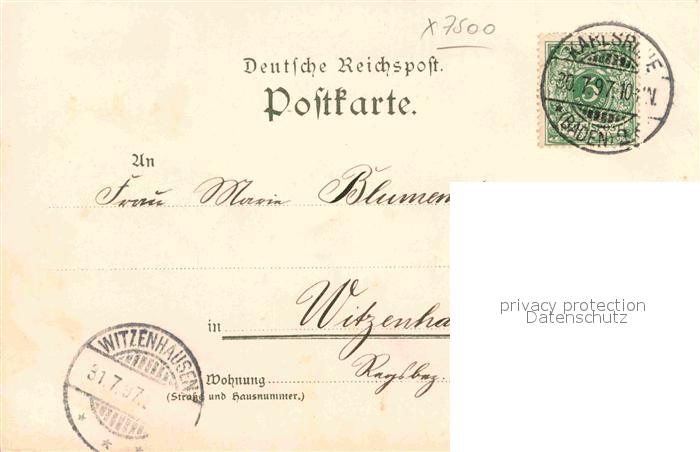 x 7500
Deutsche Reichspost.
Postkarte.
KARLSRUHE
30.7.97.10-11N.
(BADEN) 5.
An
Frau Marie Blumen
in Witzenha
privacy protection
Datenschutz
WITZENHAUSEN
31.7.97.
Wohnung Regsbez.
(Straße und Hausnummer.)